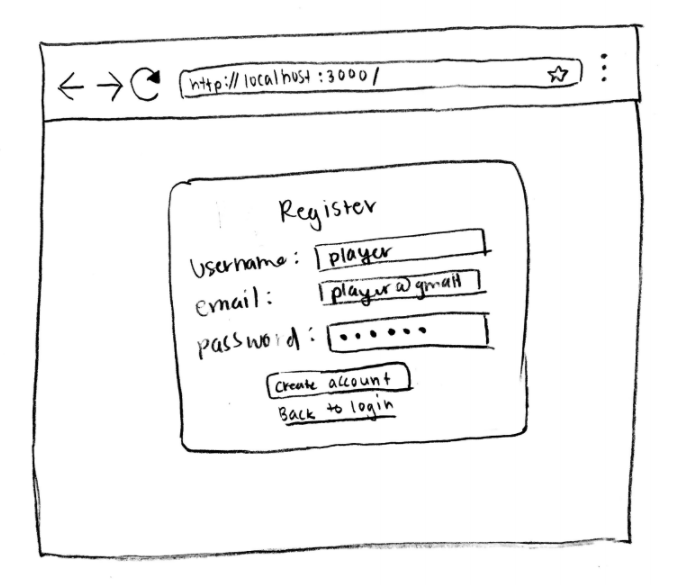 http://localhost:3000/
Register
Username: player
email: player@gmail
password: ••••••
Create account
Back to login